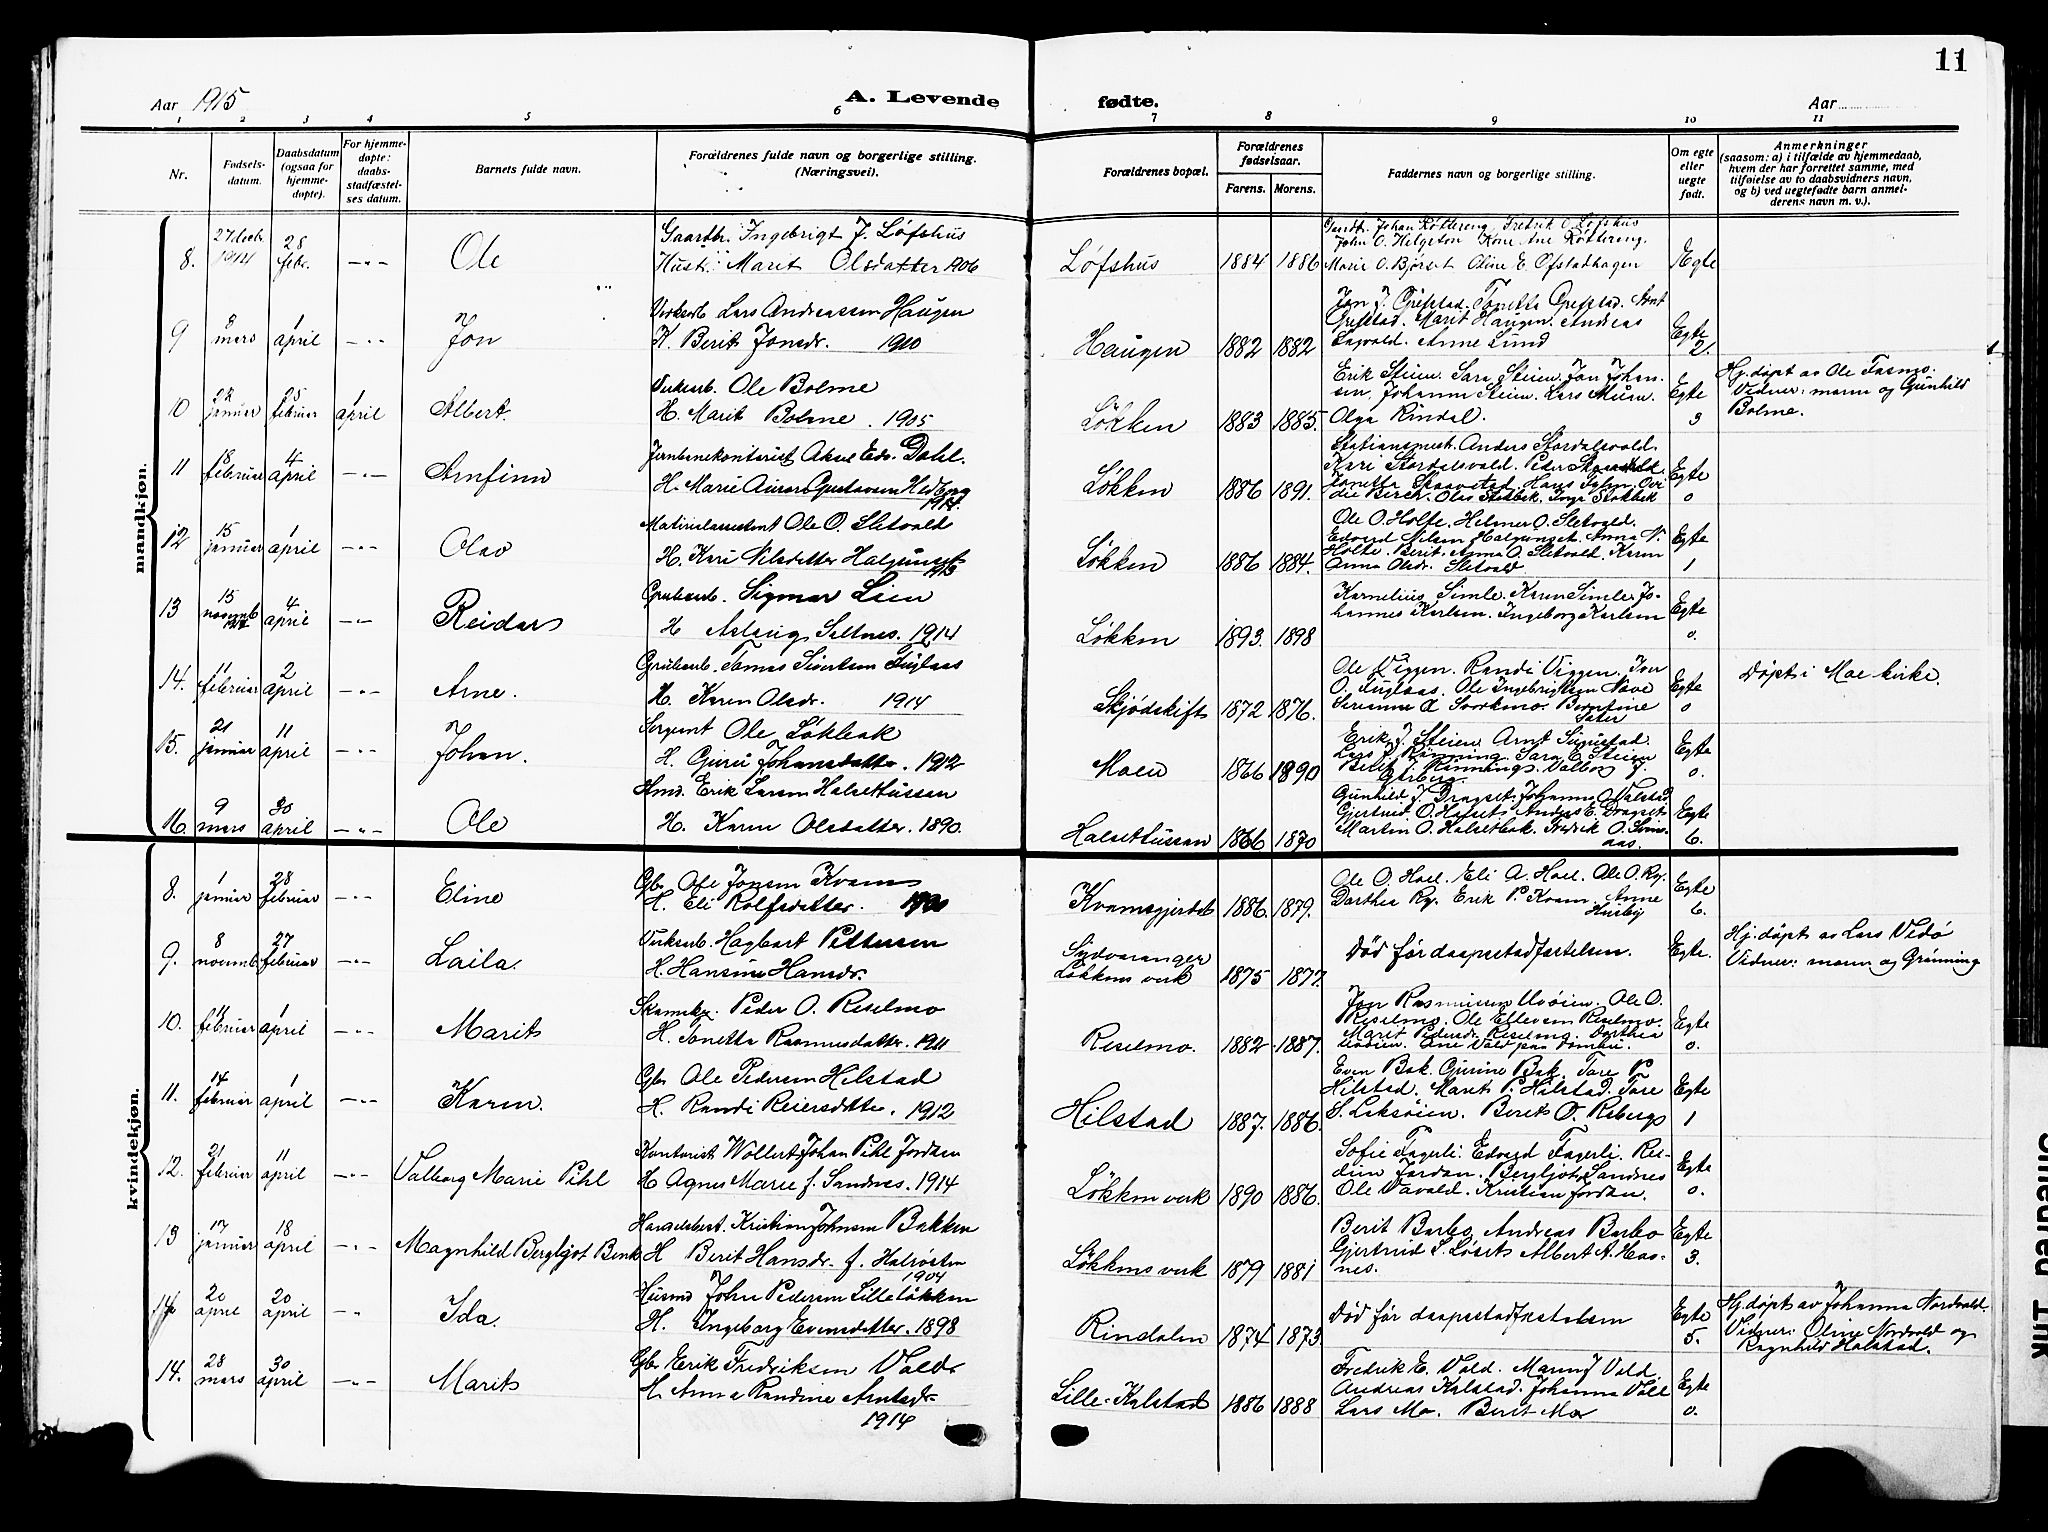 11
Aar 1915
A. Levende fødte.
Aar
1 2 3 4 5 6 7 8 9 10 11
Nr.
Fødsels-
datum.
Daabsdatum
(ogsaa for
hjemme-
døpte).
For hjemme-
døpte:
daabs-
stadfæstel-
ses datum.
Barnets fulde navn.
Forældrenes fulde navn og borgerlige stilling.
(Næringsvei).
Forældrenes bopæl.
Forældrenes
fødselsaar.
Farens. Morens.
Faddernes navn og borgerlige stilling.
Om egte
eller
uegte
født.
Anmerkninger
(saasom: a) i tilfælde av hjemmedaab,
hvem der har forrettet samme, med
tilføielse av to daabsvidners navn,
og b) ved uegtefødte barn anmel-
derens navn m. v.).
mandkjøn.
8. 27 decbr. 1914 28 febr. -"- Ole
Gaardbr. Ingebrigt J. Løfshus
Hustr: Marit Olsdatter 1906
Løfshus 1884 1886
Gaardbr. Johan Røttereng, Fredrik O. Løfshus
John O. Helgeton Kone Ane Røttereng.
Marie O. Bjørset Oline E. Ofstadhagen
Ægte
9 8 mars 1 april -"- Jon
Verksarb. Lars Andreassen Haugen
K. Berit Jonsdr. 1910
Haugen 1882 1882
Jon J. Grefstad. Tonetta Grefstad. Arnt
Grefstad. Marit Haugen. Andreas
Anne Lund
Egte 2.
10 22 januar 25 februar 1 april Albert.
Virksarb. Ole Bolme
H. Marit Bolme. 1905
Løkken 1883 1885.
Erik Steien. Sara Steien. Jon Johan-
sen, Johanna Steien. Lars
Olga Rindal.
Egte 3
Hj. døpt av Ole
Vidner: mann og Gunhild
Bolme.
11 18 februar 4 april -"- Arnfinn
Jernbanekontorist Aksel Edv. Dahl.
H. Marie Aurora Gustavsen Hedberg
Løkken 1886 1891.
Stationsmest. Anders Stordalsvold.
Kari Stordalsvold. Peder
Egte 0
12 15 januar 1 april -"- Olav
Ole O. Sletvold
H. Kari Nilsdatter
1913
Løkken 1886 1884.
Ole O. Holte. Helmer O. Sletvold.
Edvard Nilsen Anna N.
Holte. Berit. Anna O. Sletvold. Karen
Anna Olsdr. Sletvold.
Egte 1
13 15 novemb 4 april -"- Reidar
Grubearb. Sigmar Lien
H Aslaug Saltnes. 1914
Løkken 1893. 1898
Kornelius Simle. Karen Simle. Jo-
hannes Karlsen. Ingeborg Karlsen
Egte 0.
14. 11 februar 2 april -"- Arne.
Grubearb. Tomas Sivertsen Fuglaas
H. Karen Olsdr. 1914
Skjødskift 1872 1876.
Ole Viggen. Randi Viggen. Iver
O. Fuglaas. Ole Ingebrigtsen Nave
Svorkmo. Berntine
Egte 0
Døpt i Moe kirke.
15. 21 januar 11 april -"- Johan.
Sergent Ole Løkbak
H. Guru Johansdatter. 1912
Moen 1866 1890
Erik J. Steien. Arnt
Lars J. Rønning. Sara E. Steien
Berit J. Rønning. Valborg J.
Garberg.
Egte 0.
16. 9 mars 30 april -"- Ole
Hmd. Erik Larsen Halsettussan
H. Karen Olsdatter. 1890.
Halsettussan 1866 1870
Gunhild J. Dragset. Johanna O. Valstad
Gjertrud O. Halset. Anders E. Dragset
Martin O. Halsetbak. Fredrik O.
Egte 6.
kvindekjøn.
8. 1 januar 28 februar -"- Eline
Gbr Ole Jonsen Kvam
H. Eli Rolfsdatter. 1900
Kvamsgjerdet 1886. 1879.
Ole O. Hoel. Eli A. Hoel. Ole O. Ry.
Dorthea Ry. Erik P. Kvam. Anne
Husby
Egte 6.
9. 8 novemb 27 februar -"- Laila.
Virksarb. Hagbart Pettersen
H. Hansine Hansdr.
Sydvaranger
Løkkens verk 1875 1877.
Død før daapsstadfæstelsen.
Egte.
Hj. døpt av Lars Vedø
Vidner: mann og Grønning
10. 14 februar 1 april -"- Marit
Peder O. Reselmo
H. Tonetta Rasmusdatter. 1911
Reselmo. 1882 1887.
Jon Rasmussen Uvøien. Ole O.
Reselmo. Ole Ellevsen Reselmo.
Marit Pedersdr. Reselmo. Dorthea
Egte 0.
11. 14 februar 1 april -"- Karen.
Gbr Ole Pedersen Hilstad
H. Randi Reiersdatter. 1912
Hilstad 1887. 1886.
Even Bak. Gurine Bak. Tore P
Hilstad. Marit P. Hilstad. Tore
S. Laksøien. Berit O. Roberg
Egte 1
12. 21 februar 11 april -"- Valborg Marie Pihl
Kontorist Wollert Johan Pihl Jordan
H. Agnes Marie f. Sandnes. 1914
Løkken verk 1890 1886.
Sofie Fagerli. Edvard Fagerli.
Jordan. Bergljot Sandnes
Ole Vavold. Kristian Jordan.
Egte 0.
13 17 januar 18 april -"- Magnhild Bergljot Benk
Handelsbest. Kristian Johnsen Bakken
H Berit Hansdr. f.
1904
Løkkens verk 1879 1881
Berit Barbo, Andreas Barbo
Gjertrud S. Løset. Albert A. Haa-
nes.
Egte 3.
14 20 april 20 april " Ida.
Husmd John Pedersen Lilleløkken
H. Ingeborg Evensdatter. 1898
Rindalen 1874 1873.
Død før daapsstadfæstelsen
Egte 5.
Hj. døpt av Johanna Nordvold.
Vidner: Oline Nordvold og
Ragnhild Halstad.
14. 28 mars 30 april -"- Marit
Gbr Erik Fredriksen Vold.
H. Anna Randine Arntsdr.
1914
Lille-Kalstad 1886 1888
Fredrik E. Vold. Maren J Vold.
Andreas Kalstad. Johanna Voll
Lars Mo. Berit Mo
Egte 0.
Smeared Ink